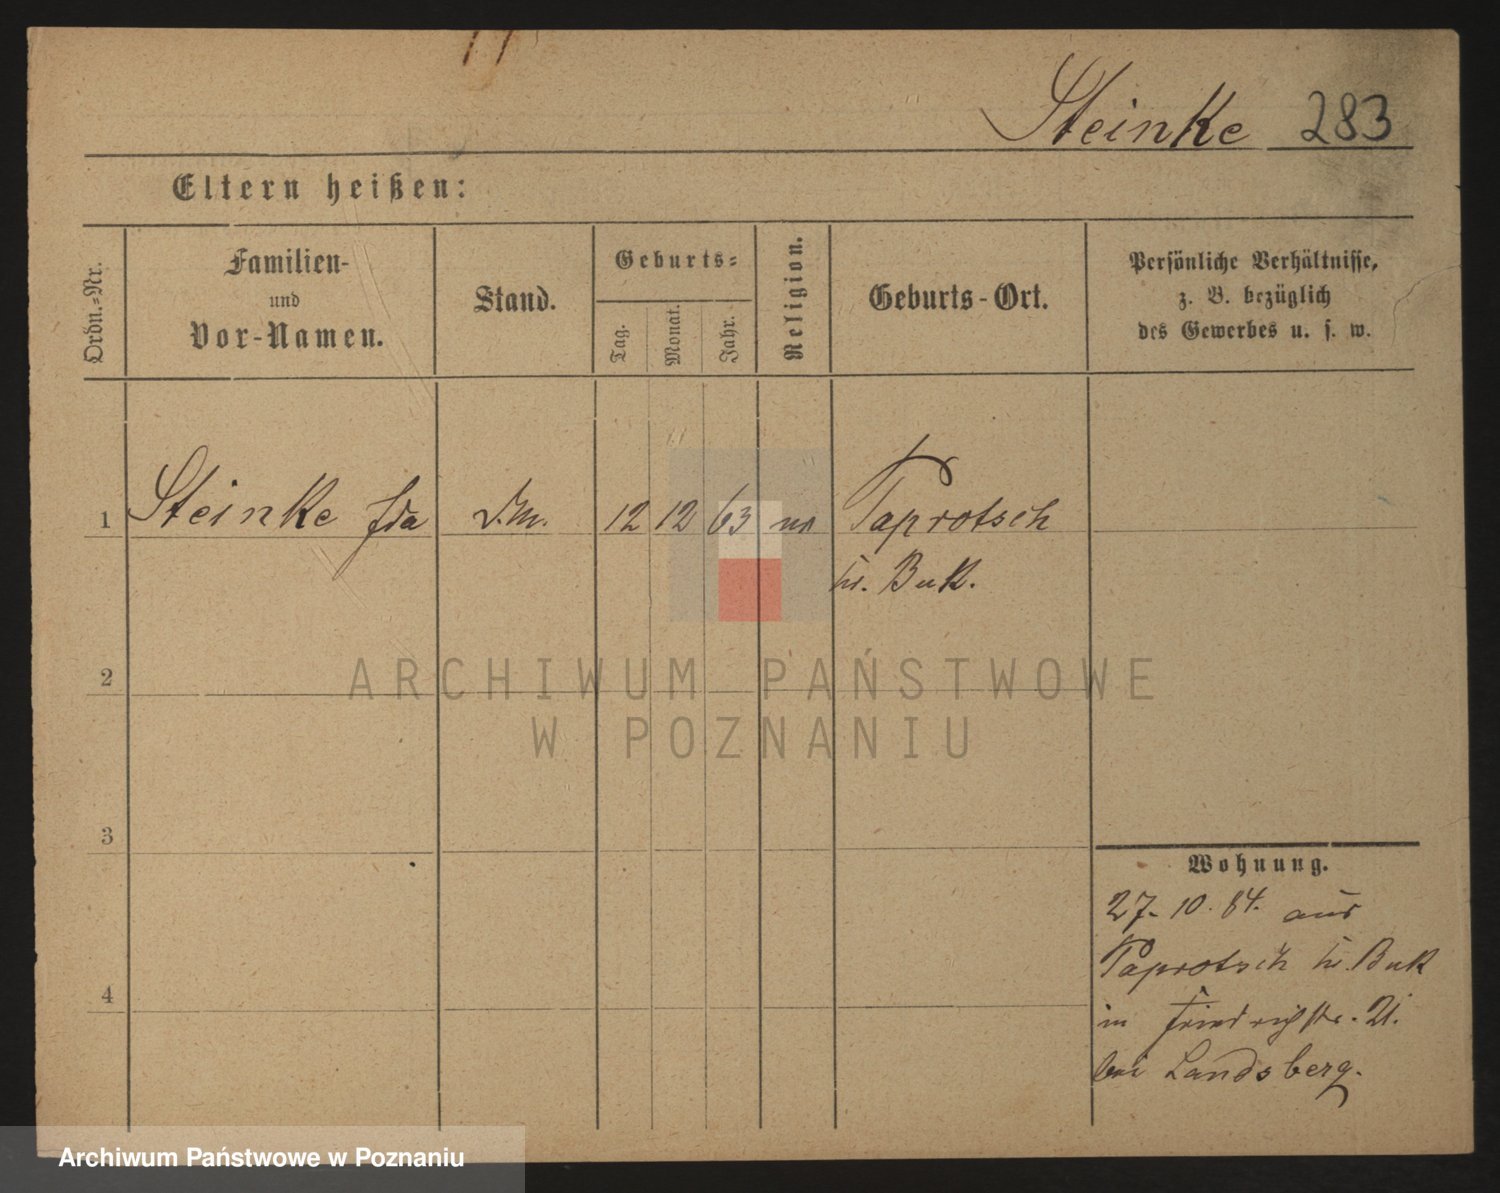 Steinke 283
Eltern heißen:
Ordn.-Nr.
Familien-
und
Vor-Namen.
Stand.
Geburts-
Tag.
Monat.
Jahr.
Religion.
Geburts-Ort.
Persönliche Verhältnisse,
z. B. bezüglich
des Gewerbes u. s. w.
1 Steinke Ida D.M. 12 12 63 Paprotsch
Kr. Buk.
2
3
4
Wohnung.
27. 10. 84. aus
Paprotsch Kr. Buk
in Friedrichstr. 21.
bei Landsberg.
ARCHIWUM PAŃSTWOWE
W POZNANIU
Archiwum Państwowe w Poznaniu